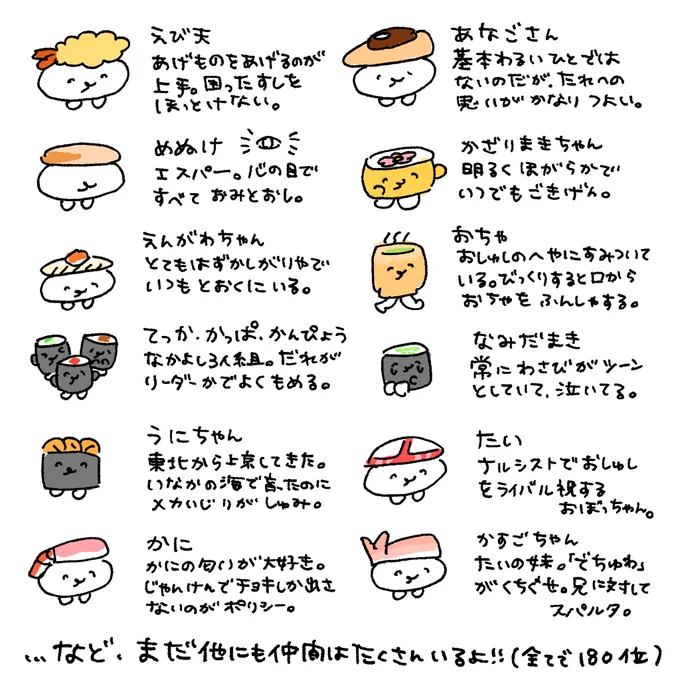 えび天
あげものをあげるのが
上手。困ったすしを
ほっとけない。
めぬけ
エスパー。心の目で
すべておみとおし。
えんがわちゃん
とてもはずかしがりやで
いつもとおくにいる。
てっか・かっぱ・かんぴょう
なかよし3人組。だれが
リーダーかでよくもめる。
うにちゃん
東北から上京してきた。
いなかの海で育ったのに
メカいじりがしゅみ。
かに
かにの匂いが大好き。
じゃんけんでチョキしか出さ
ないのがポリシー。
あなごさん
基本わるいひとでは
ないのだが、たれへの
思いがかなりつよい。
かざりまきちゃん
明るくほがらかで
いつでもごきげん。
おちゃ
おしゅしのへやにすみついて
いる。びっくりすると口から
おちゃをふんしゃする。
なみだまき
常にわさびがツーン
としていて、泣いてる。
たい
ナルシストでおしゅし
をライバル視する
おぼっちゃん。
かすごちゃん
たいの妹。「でちゅわ」
がくちぐせ。兄に対して
スパルタ。
…など、まだ他にも仲間はたくさんいるよ!!(全てで180位)